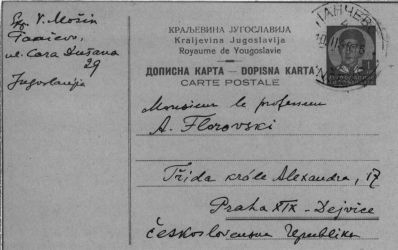 V. Mošin
Pančevo,
ul. Cara Dušana
29
Jugoslavija
КРАЉЕВИНА ЈУГОСЛАВИЈА
Kraljevina Jugoslavija
Royaume de Yougoslavie
ДОПИСНА КАРТА — DOPISNA KARTA
CARTE POSTALE
ПАНЧЕВО
Monsieur le professeur
A. Florovski
Třída krále Alexandra, 17
Praha XIX - Dejvice
Československa republika